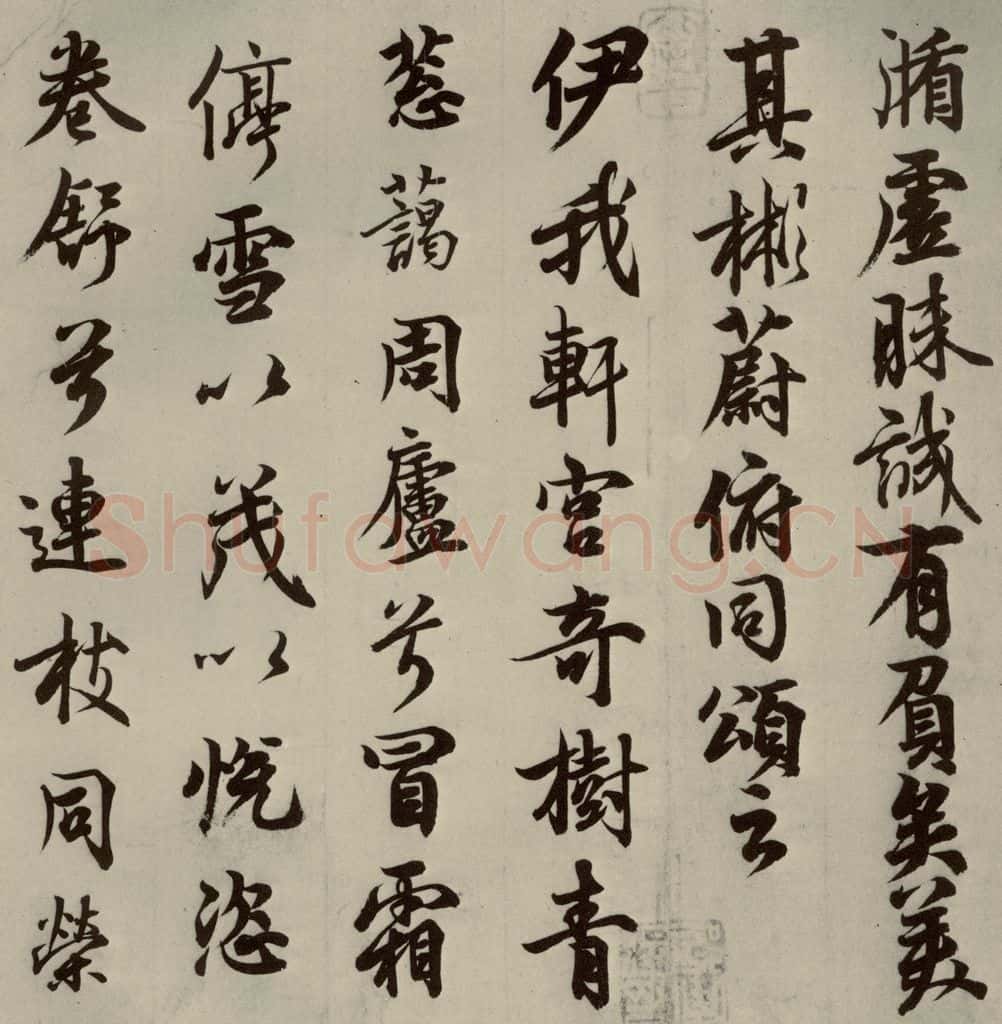 循虚昧誠有負矣美
其彬蔚俯同頌云
伊我軒宫奇樹青
葱藹周廬兮冒霜
停雪以茂以悦恣
卷舒兮連枝同榮
Shufawang.CN